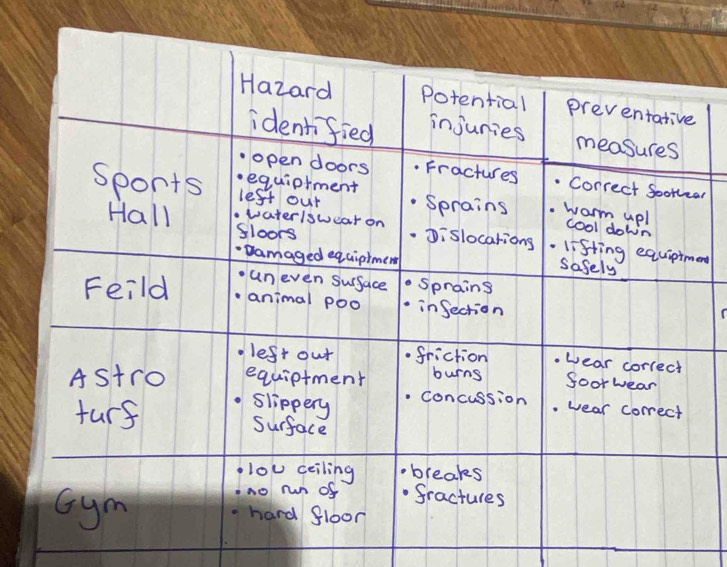 Hazard
identified
Potential
injuries
preventative
measures
Sports
Hall
• open doors
• equiptment
left out
• water/sweat on
floors
• Damaged equiptment
• Fractures
• Sprains
• Dislocations
• Correct footwear
• Warm up/
cool down
• lifting equiptment
safely
Feild
• uneven surface
• animal poo
• Sprains
• infection
Astro
turf
• left out
equiptment
• Slippery
Surface
• friction
burns
• concussion
• Wear correct
footwear
• Wear correct
Gym
• low ceiling
• no run of
• hard floor
• breaks
• fractures